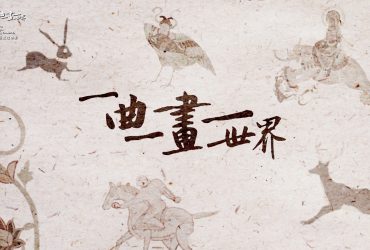 一曲一畫一世界